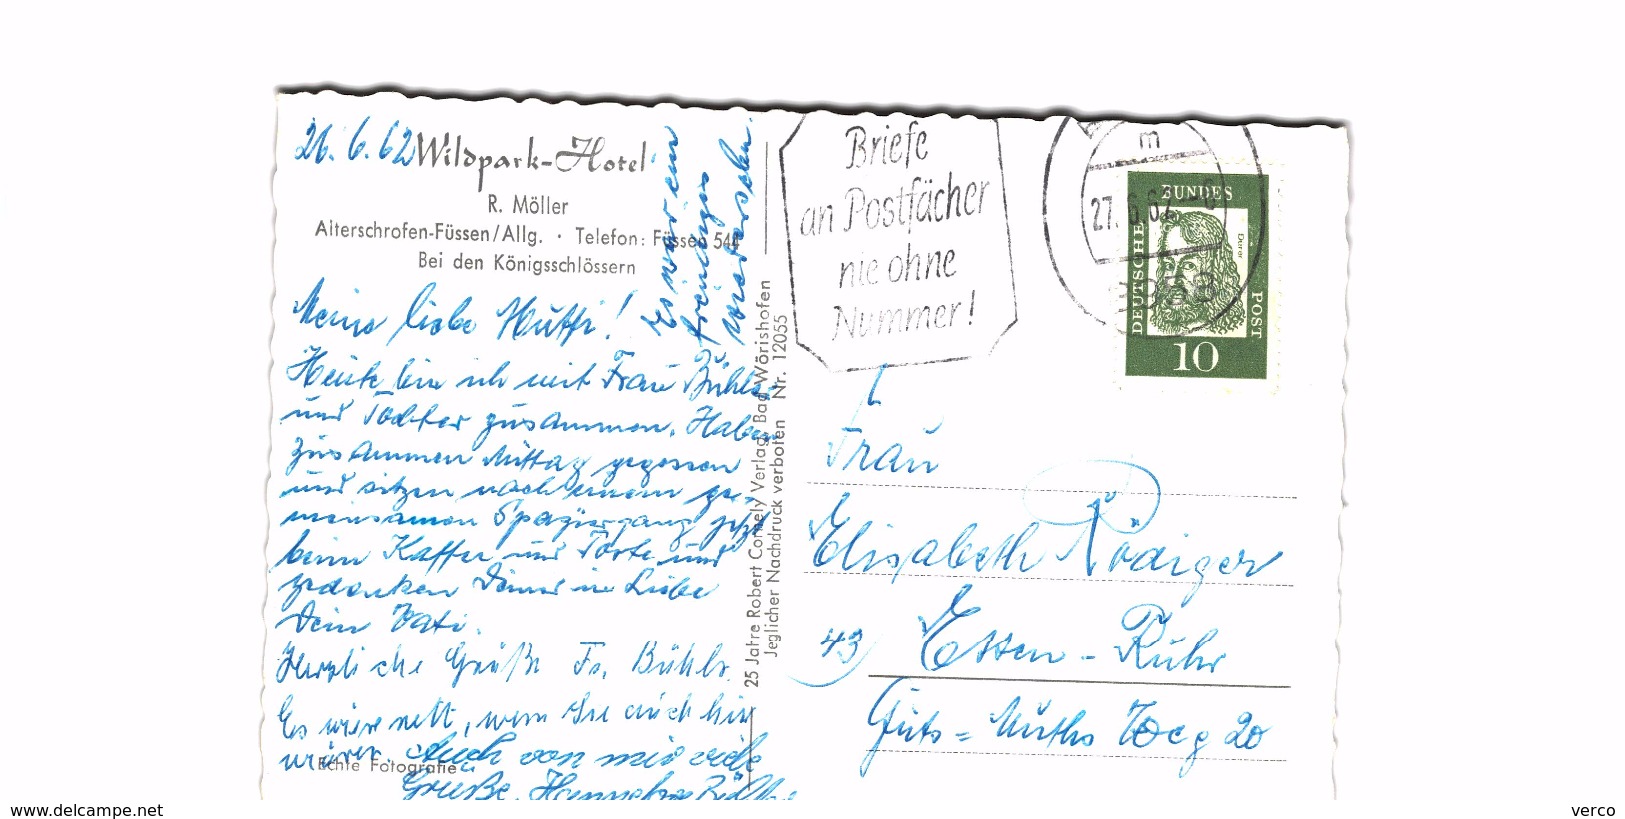 26. 6. 62
Wildpark-Hotel
R. Möller
Alterschrofen-Füssen/Allg. · Telefon: Füssen 544
Bei den Königsschlössern
Meine liebe Mutti!
Heute bin ich mit Frau Bühler
und Tochter zusammen. Haben
zusammen Mittag gegessen
und sitzen nach einem ge-
meinsamen Spaziergang jetzt
beim Kaffee und Torte und
gedenken Deiner in Liebe
Dein Vati.
Herzliche Grüße Fr. Bühler.
Es wäre nett, wenn Sie auch hier
wären. Auch von mir viele
Grüße,
Echte Fotografie
Es war ein
freudiges
Wiedersehen.
25 Jahre Robert Cornely Verlag, Bad Wörishofen
Jeglicher Nachdruck verboten Nr. 12055
Briefe
an Postfächer
nie ohne
Nummer!
m
27. 6. 62
DEUTSCHE BUNDES POST
Dürer
10
Frau
Elisabeth Rödiger
43 Essen-Ruhr
Guts-Muths Weg 20
delcampe.net
verco